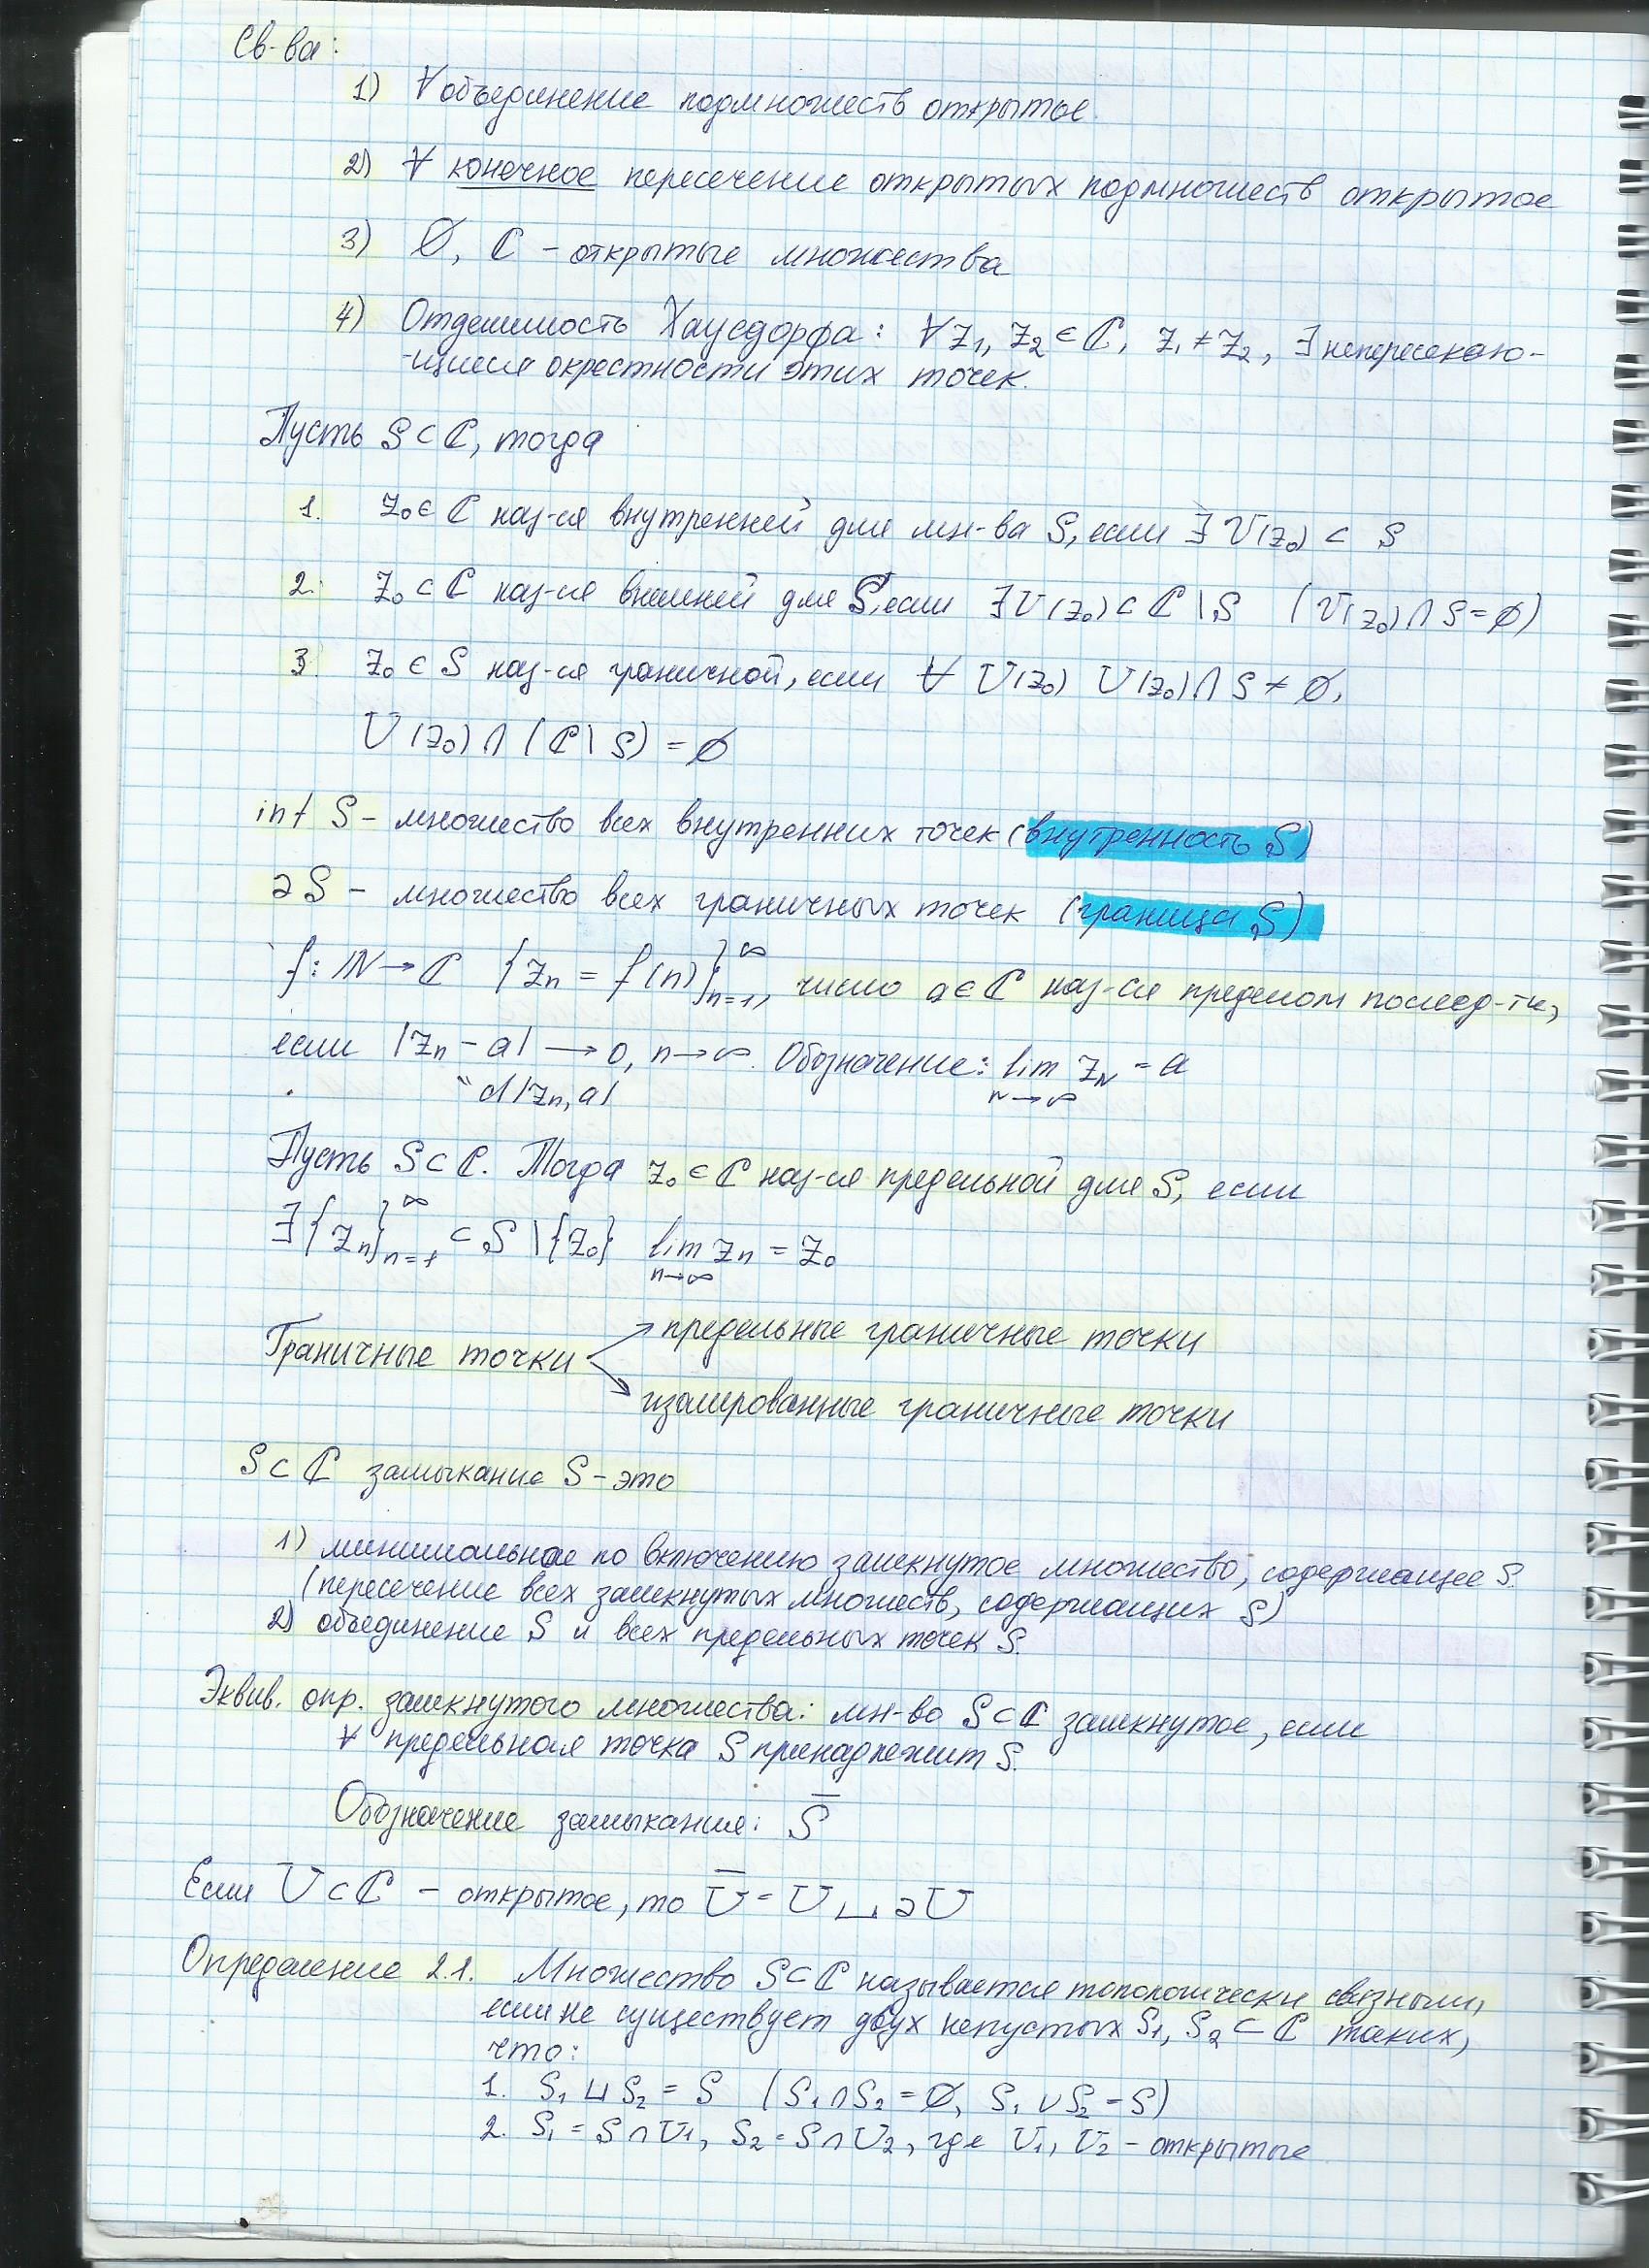 Св-ва:
1) ∀ объединение подмножеств открытое.
2) ∀ конечное пересечение открытых подмножеств открытое
3) ∅, ℂ – открытые множества
4) Отделимость Хаусдорфа: ∀ z₁, z₂ ∈ ℂ, z₁ ≠ z₂, ∃ непересекаю-
-щиеся окрестности этих точек.
Пусть S ⊂ ℂ, тогда
1. z₀ ∈ ℂ наз-ся внутренней для мн-ва S, если ∃ U(z₀) ⊂ S
2. z₀ ⊂ ℂ наз-ся внешней для S, если ∃ U(z₀) ⊂ ℂ \ S (U(z₀) ∩ S = ∅)
3. z₀ ∈ S наз-ся граничной, если ∀ U(z₀) U(z₀) ∩ S ≠ ∅,
U(z₀) ∩ (ℂ \ S) = ∅
int S – множество всех внутренних точек (внутренность S)
∂S – множество всех граничных точек (граница S)
f: ℕ → ℂ {zₙ = f(n)}ₙ₌₁^∞, число a ∈ ℂ наз-ся пределом послед-ти,
если |zₙ – a| → 0, n → ∞. Обозначение: lim zₙ = a
" d(zₙ, a) n → ∞
Пусть S ⊂ ℂ. Тогда z₀ ∈ ℂ наз-ся предельной для S, если
∃ {zₙ}ₙ₌₁^∞ ⊂ S \ {z₀} lim zₙ = z₀
n→∞
предельные граничные точки
Граничные точки
изолированные граничные точки
S ⊂ ℂ замыкание S – это
1) минимальное по включению замкнутое множество, содержащее S.
(пересечение всех замкнутых множеств, содержащих S)
2) объединение S и всех предельных точек S.
Эквив. опр. замкнутого множества: мн-во S ⊂ ℂ замкнутое, если
∀ предельная точка S принадлежит S.
Обозначение замыкания: S̅
Если U ⊂ ℂ – открытое, то U̅ = U ⊔ ∂U
Определение 2.1. Множество S ⊂ ℂ называется топологически связным,
если не существует двух непустых S₁, S₂ ⊂ ℂ таких,
что:
1. S₁ ⊔ S₂ = S (S₁ ∩ S₂ = ∅, S₁ ∪ S₂ = S)
2. S₁ = S ∩ U₁, S₂ = S ∩ U₂, где U₁, U₂ – открытые